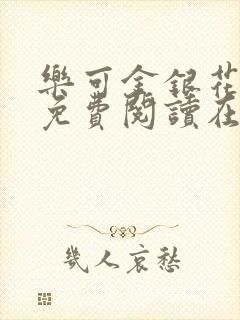 樂可金銀花
免費閱讀在
幾人哀愁